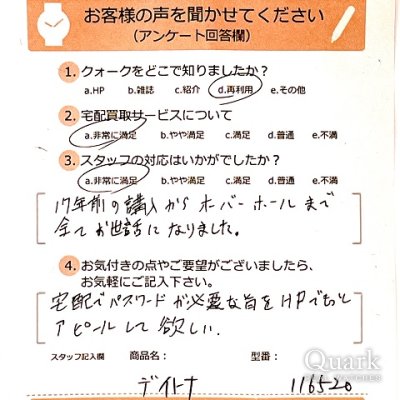 お客様の声を聞かせてください
(アンケート回答欄)
1. クォークをどこで知りましたか?
a.HP b.雑誌 c.紹介 d.再利用 e.その他
2. 宅配買取サービスについて
a.非常に満足 b.やや満足 c.満足 d.普通 e.不満
3. スタッフの対応はいかがでしたか?
a.非常に満足 b.やや満足 c.満足 d.普通 e.不満
17年前の購入からオーバーホールまで
全てお世話になりました。
4. お気付きの点やご要望がございましたら、
お気軽にご記入下さい。
宅配でパスワードが必要な旨をHPでもっと
アピールして欲しい。
スタッフ記入欄 商品名: 型番:
デイトナ 116520
Quark
WATCHES